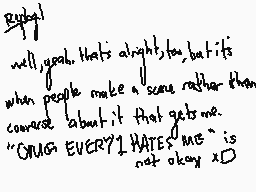 well, yeah. that's alright, too, but it's
when people make a scene rather than
converse about it that gets me.
"OMG EVERY1 HATES ME" is
not okay xD